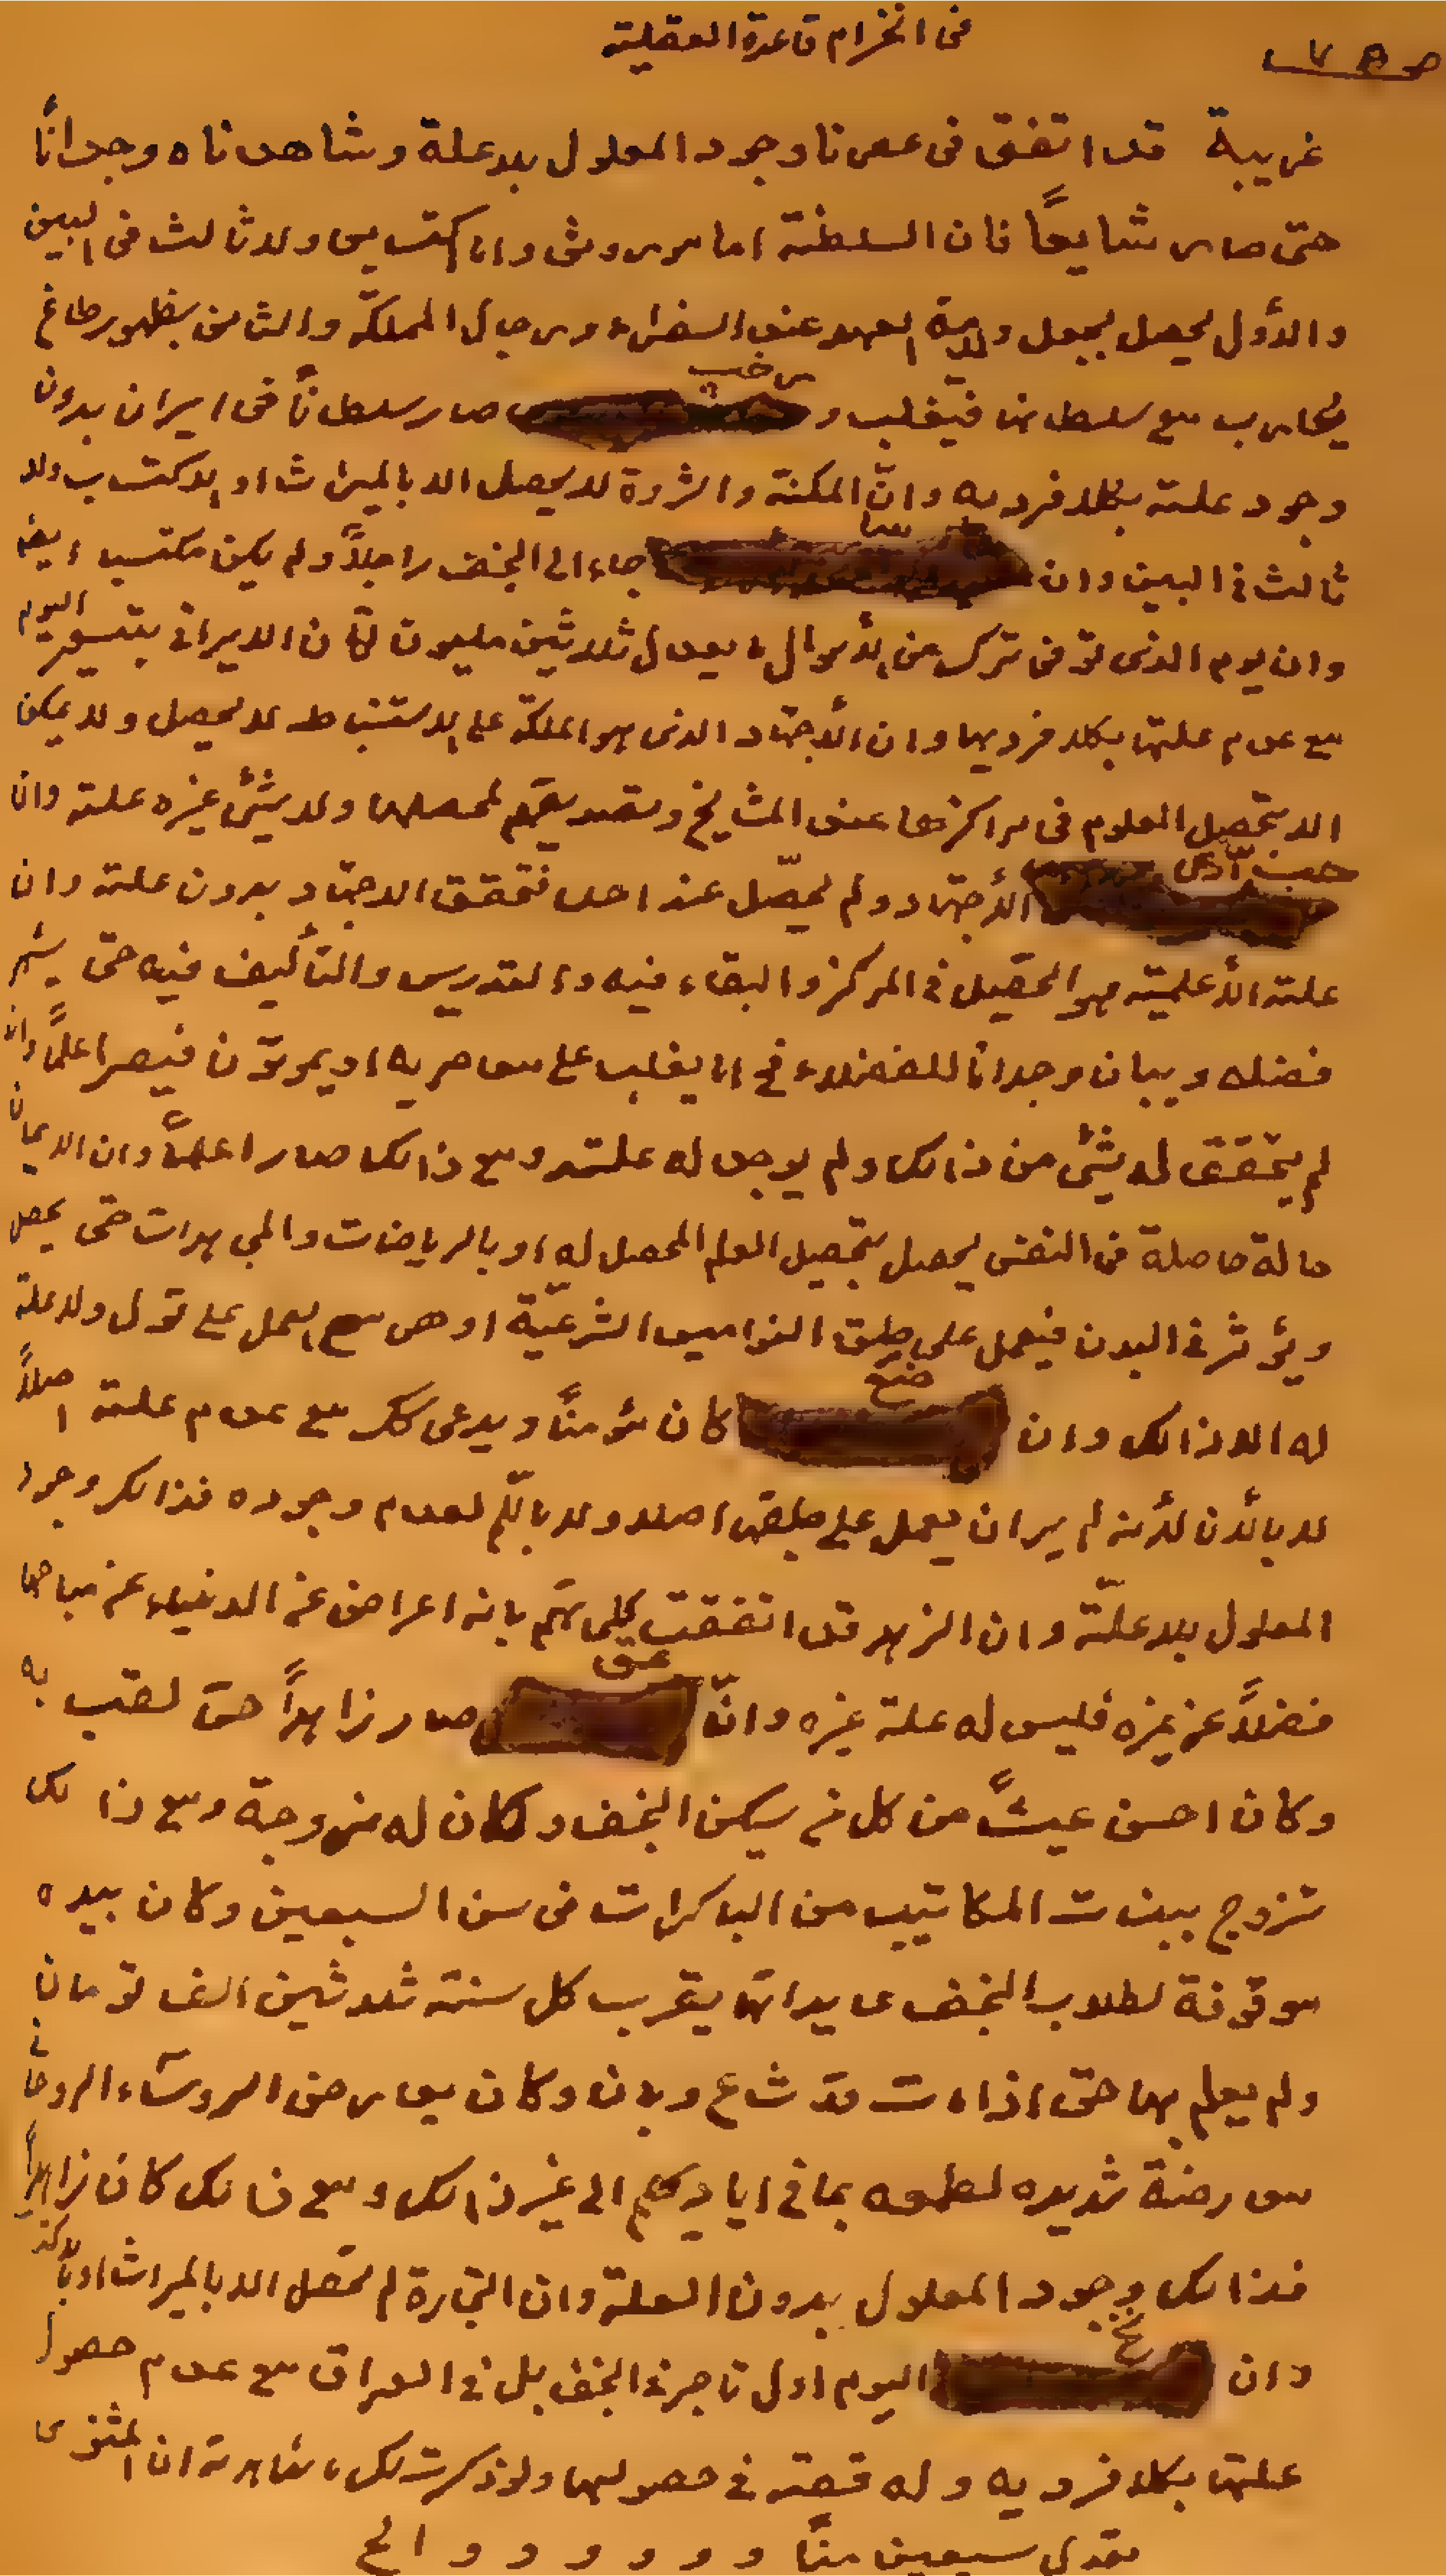 فى انخرام قاعدة العقلية
غريبة قد اتفق فى عصرنا وجود المعلول بلا علة وشاهدناه وجداناً
حتى صار شايعاً فان السلطنة اما موروثى واما اكتسابى ولا ثالث فى البين
والأول يحصل بجعل ولاية العهد عند السفراء ورجال المملكة والثانى بظهور طاغ
يحارب مع سلطان فيغلب و صار سلطاناً فى ايران بدون
وجود علته بكلا فرديه وانّ المكنة والثروة لا يحصل الا بالميراث او بالاكتساب ولا
ثالث فى البين وان جاء الى النجف راجلاً ولم يكن مكتسب ايضا
وان يوم الذى توفى ترك من الأموال ما يعادل ثلاثين مليون تومان الايرانى اليوم
مع عدم علتها بكلا فرديها وان الأجتهاد الذى هو الملكة على الاستنباط لا يحصل ولا يمكن
الا بتحصيل العلوم فى مراكزها عند المشايخ وتصديقهم لمحصلها ولا شئ غيره علته وان
الأجتهاد ولم يحصّل عند احد فتحقق الاجتهاد بدون علته وان
علته الأعلمية هو التحصيل فى المركز والبقاء فيه والتدريس والتأليف فيه حتى يشهر
فضله ويبان وجدانا للفضلاء فى ان يغلب على معاصريه او يموتون فيصير اعلماً وان
لم يتحقق له شئ من ذالك ولم يوجد له علته ومع ذالك صار اعلماً وان الايمان
حالة حاصلة فى النفس يحصل بتحصيل العلم المحصل له او بالرياضات والمجاهدات حتى يحصل
ويؤثر فى البدن فيعمل على طبق النواميس الشرعيّة او هى مع العمل على قول ولا علة
له الا ذالك وان كان مؤمناً ويدعى كك مع عدم علته اصلاً
لا بالأن لأنه لم ير ان يعمل على طبقها اصلا ولا بالكم لعدم وجوده فذالك وجود
المعلول بلا علّة وان الزهد قد اتفقت كلماتهم بانه اعراض عن الدنيا عن مباحها
فضلاً عن غيره فليس له علة غيره وانّ صار زاهداً حتى لقب به
وكان احسن عيشاً من كل من يسكن النجف وكان له زوجة ومع ذالك
تزوج ببنات المكاتيب من الباكرات فى سن السبعين وكان بيده
موقوفة لطلاب النجف عايداتها يقرب كل سنة ثلاثين الف تومان
ولم يعلم بها حتى اذا مات قد شاع وبان وكان يعارض الروساء الروحانى
معارضة شديده لطمعه بما فى اياديهم الى غير ذالك ومع ذالك كان زاهداً
فذالك وجود المعلول بدون العلة وان التجارة لم تحصل الا بالميراث او
وان اليوم اول تاجر فى النجف بل فى العراق مع عدم حصول
علتها بكلا فرديه وله قصة فى حصولها ولو ذكرت لك ان المثنوى
بقدر سبعين منّاً و و و و و و الخ